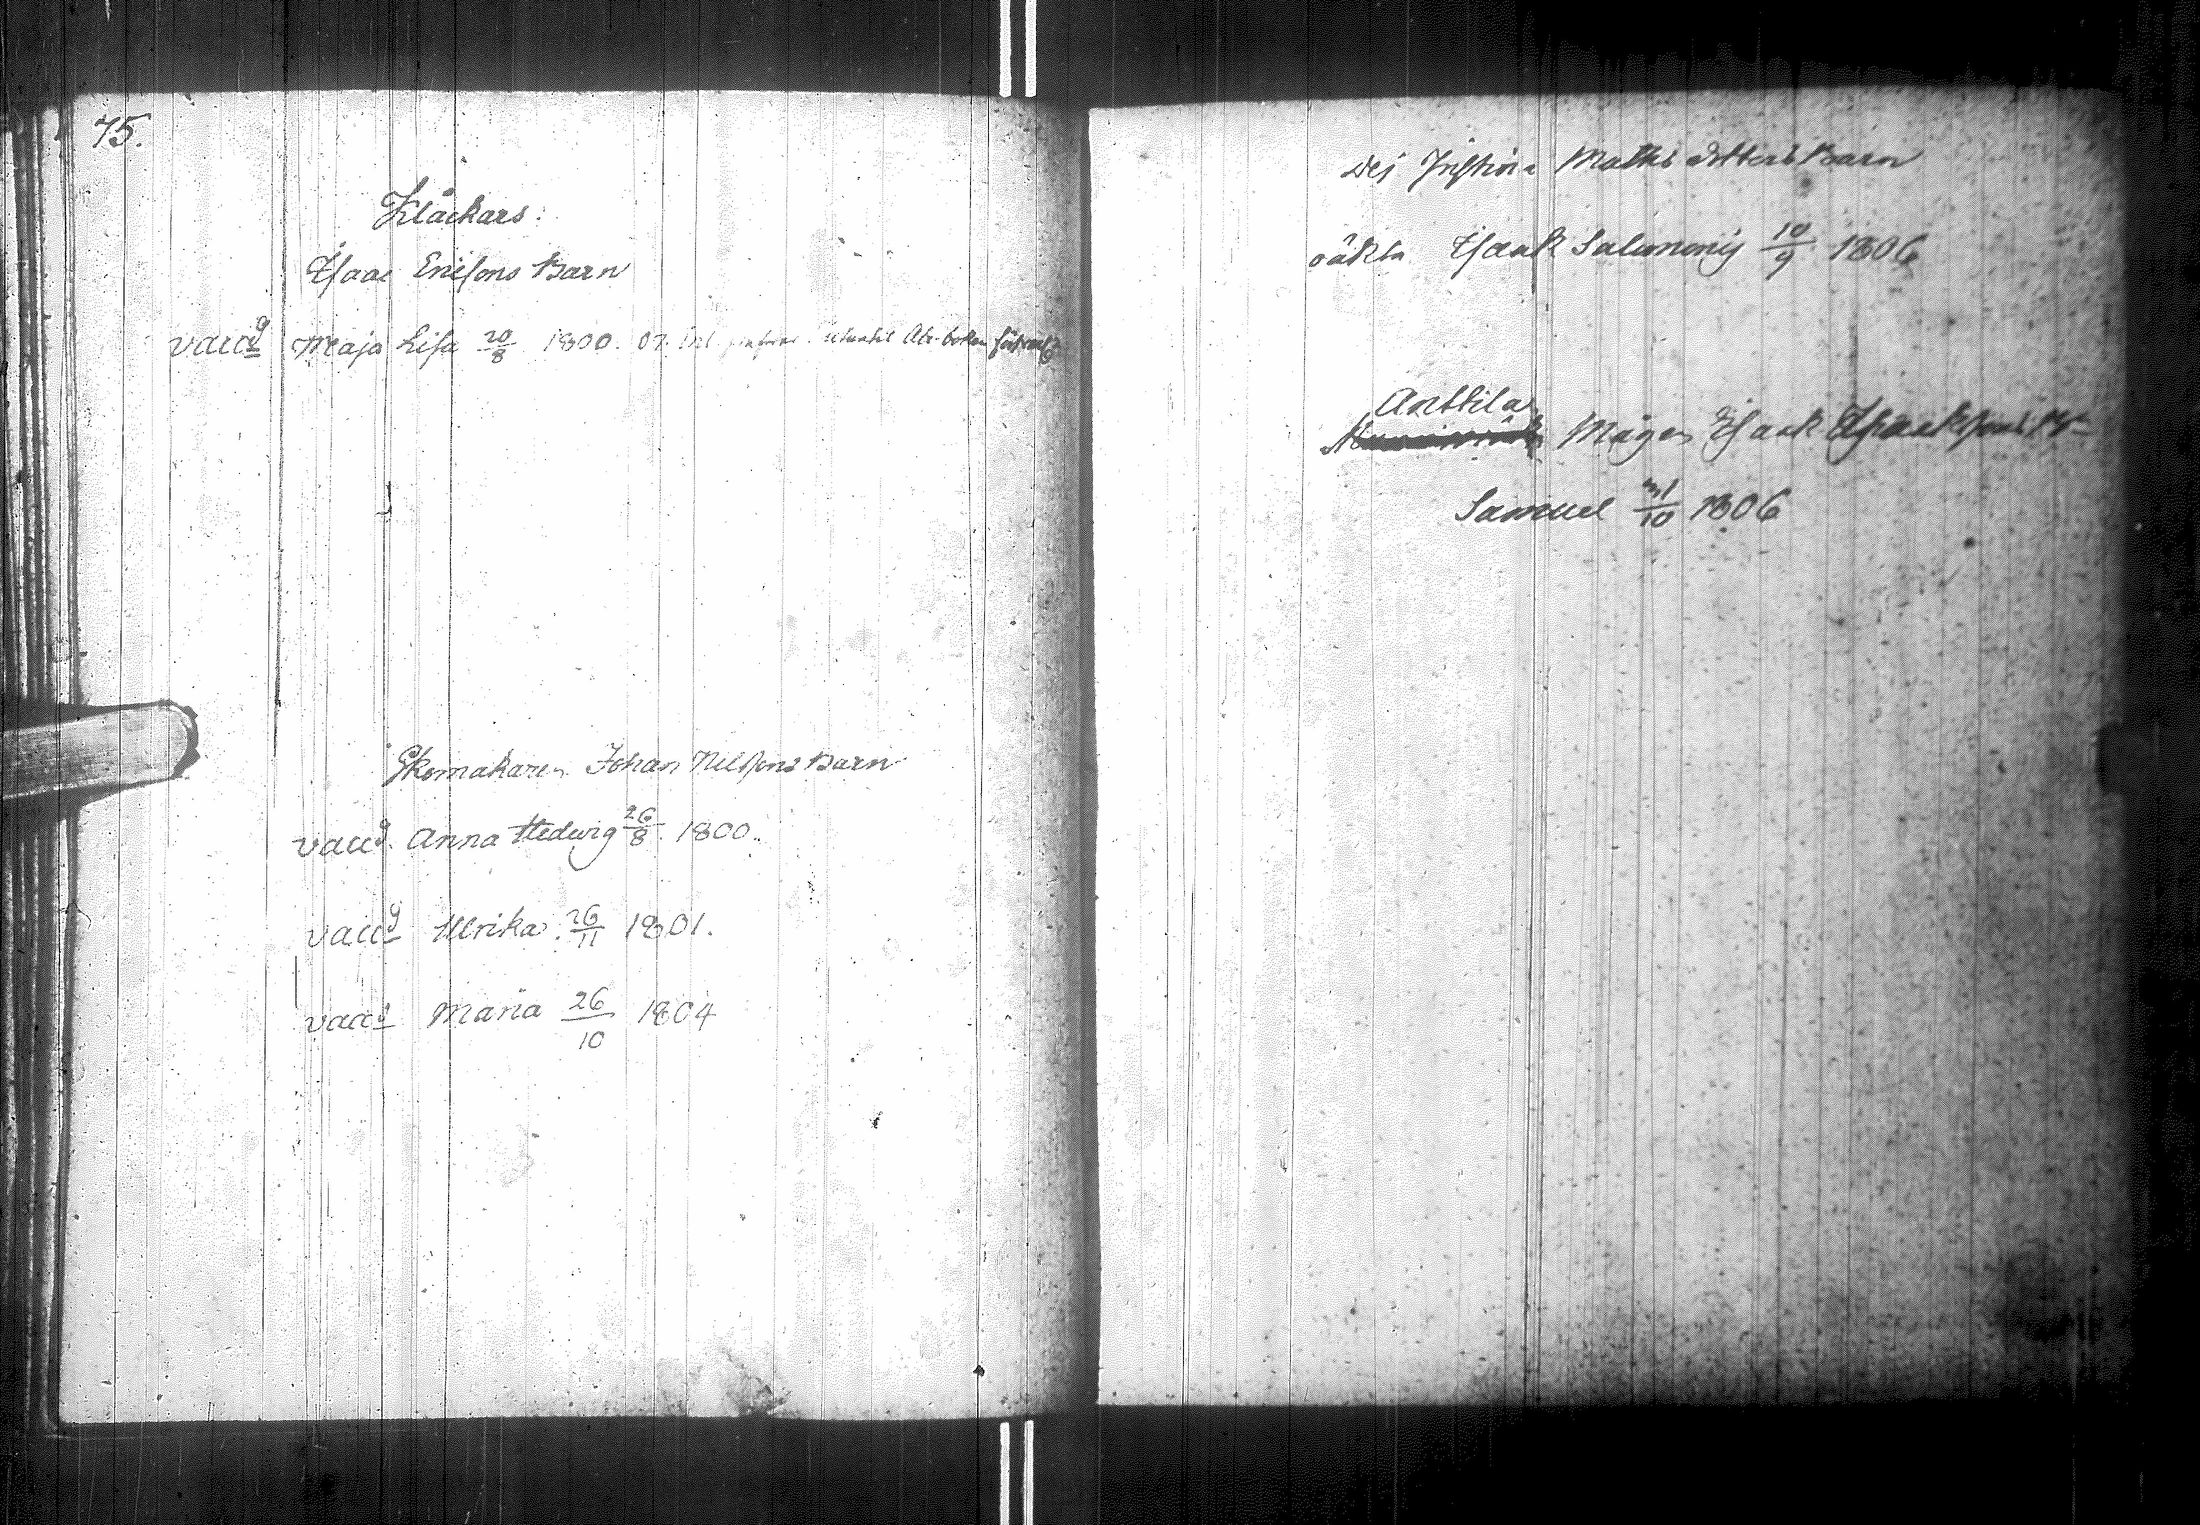 75.
Klåckars.
Isaac Ericsons Barn
vacc^d Maja Lisa 20/8 1800. 07.
Skomakaren Johan Nilssons Barn
vacc^d. Anna Hedwig 26/8 1800.
vacc^d Ulrika 26/11 1801.
vacc^d Maria 26/10 1804
Mattsdotters Barn
oäkta Isaak Salomonis 10/9 1806
Anttila
Mågen Isaak Isaakssons
Samuel 31/10 1806